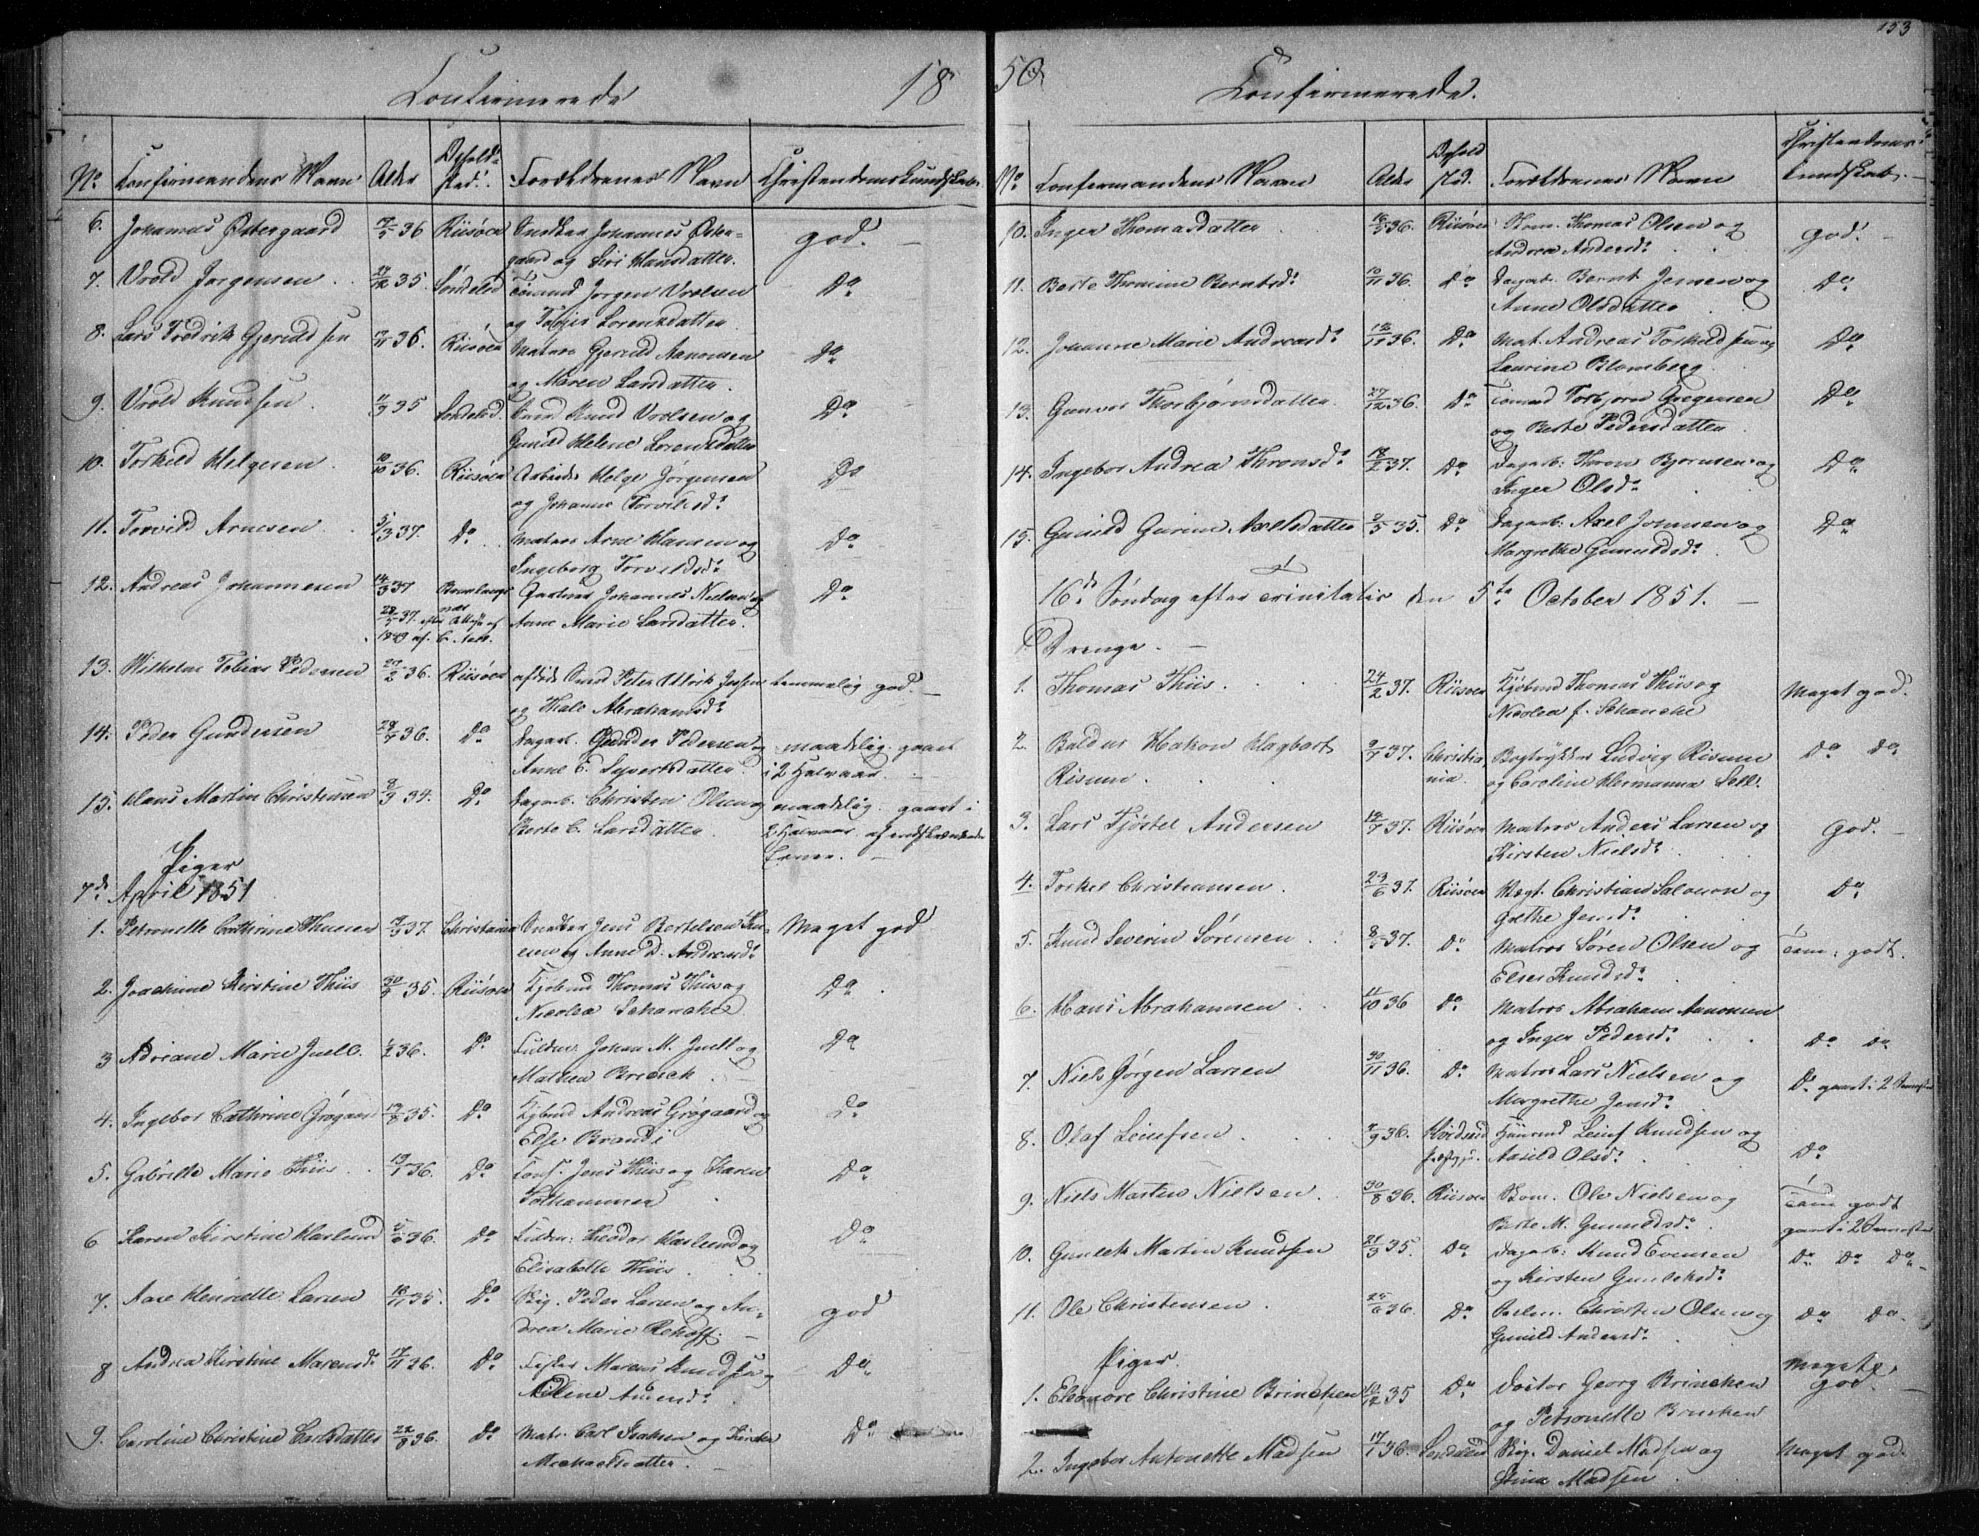 153
Confirmerede 18
No Confirmandens Navn Alder Opholdsted. Forældrenes Navn Christendomskundskab
6. Johannes Østergaard 36 Riisøer Johannes Øster-
gaard og Siri Hansdatter. god.
7. Vrold Jørgensen 35. Søndeled Jørgen Vrolsen
og Lorentsdatter Do
8. Lars Fredrik Gjeruldsen 36. Riisøer Matros Gjeruld Aanonsen
og Maren Larsdatter. Do
9. Vrold Knudsen 35 Søndeled. Knud Vrolsen og
Gunild Helene Lorentsdatter Do
10. Torkild Helgesen 10/10 36. Riisøer Arbeider Helge Jørgensen
og Johanne Torvildsd. Do
11. Torvild Arnesen 5/3 37. Do Matros Arne Hansen og
Ingeborg Torvildsd. Do
12. Andreas Johannesen 14/3 37 Gartner Johannes Nielsen og
Anne Marie Larsdatter. Do
13. Wilhelm Tobias Pedersen 36. Riisøer afdøde Peter Ulrik Jensen temmelig god.
og Thale Abrahamsd.
14. Peder Gundersen 36. Do Dagarb. Gunder Pedersen og maadelig. gaaet
Anne C. Syvertsdatter. i 2 Halvaar.
15. Hans Martin Christensen 34. Do Dagarb. Christen Olsen og maadelig. gaaet i
Berte C. Larsdatter. 2 Halvaar af indskrænkede
Evner.
Piger
7de April 1851
1. Petronelle Cathrine Thuesen 37. Christiania Snedker Jens Bertelsen Thu-
esen og Anne D. Andreasd. Meget god
2. Joachime Kirstine Thiis 35. Riisøer Kjøbmd Thomas Thiis og
Nicolea Schanche Do
3 Adriane Marie Juell. 36. Do Fuldm. Johan M. Juell og
Mathea Do
4. Ingebor Cathrine Grøgaard 35. Do Kjøbmd Andreas Grøgaard og
Else Brandi Do
5. Gabrielle Marie Thiis 36. Do Jens Thiis og Karen
Folkammer Do
6 Karen Kirstine Haslund 36. Do Fuldm: Theodor Haslund og
Elisabeth Thiis Do
7. Aase Henriette Larsen 35. Do Rig. Peder Larsen og An-
drea Marie Rehoff. god
8 Andrea Kirstine Marensd. 36. Do Fisker Marens Knudsen og
Helene Amundsd. Do
9. Caroline Christine Carlsdatter 36. Do Matr. Carl Isaksen og Kirsten
Michaelsdatter. Do
50. Confirmerede.
No Confirmandens Navn Alder Ophold sted. Forældrenes Navn Christendoms kundskab.
10. Inger Thomasdatter 36. Riisøer Thomas Olsen og
Andrea Andersd. God.
11. Berte Thomine Berntsd. 36. Do Dagarb. Bernt Jensen og
Anne Olsdatter Do
12. Johanne Marie Andreasd. 36. Do Mat. Andreas Torkildsen og
Laurine Blomberg Do
13. Gunvor Thorbjørnsdatter 27/12 36. Do Tømmd Torbjørn Gregersen
og Berte Pedersdatter Do
14. Ingebor Andrea Thronsd. 18/2 37. Do Dagarb: Thron Bjørnsen og
Inger Olsd. Do
15. Gunild Gurine Axelsdatter 35. Do Dagarb. Axel Johnsen og
Margrethe Gunuldsd. Do
16de Søndag efter Trinitatis den 5te October 1851.
Drenge.
1. Thomas Thiis 24/2 37. Riisøer Kjøbmd Thomas Thiis og
Nicolea f. Schanche Meget god.
2. Baldur Hakon Hagbart
Risum 37. Christiania Bogtrykker Ludvig Risum
og Caroline Hermanna Sell. Do Do
3. Lars Kjøstel Andersen 37. Riisøer Matros Anders Larsen og
Kirsten Nielsd. God.
4. Torkel Christiansen 23/6 37. Riisøer Vægt. Christian Salomon og
Grethe Jensd. Do
5. Knud Severin Sørensen 37. Do Matros Søren Olsen og
Else Knudsd. Tem. godt.
6. Hans Abrahamsen 11/10 36 Do Matros Abraham Aanonsen
og Inger Pedersd. Do Do
7. Niels Jørgen Larsen 30/11 36. Do Matros Lars Nielsen og
Margrethe Jensd. Do gaaet i 2 Semester
8. Olaf Leiufsen 36. Huusmd Leiuf Knudsen og
Aasild Olsd. Do
9. Niels Martin Nielsen 30/8 36. Riisøer Ole Nielsen og
Berte M. Gunuldsd. Tem godt
gaaet i 2 Semester
10. Gunleik Martin Knudsen 35. Do Dagarb: Knud Evensen
og Kirsten Gunleiksd. Do Do Do
11. Ole Christensen 36. Do Christen Olsen og
Gunild Andersd. Do Do
Piger.
1. Eleonore Christine Brinchen 35 Do Doctor Georg Brinchen
og Petronelle Brinchen Meget
God.
2. Ingebor Antonette Madsen 17/1 36. Søndeled Rig. Daniel Madsen og
Stina Madsen Meget god